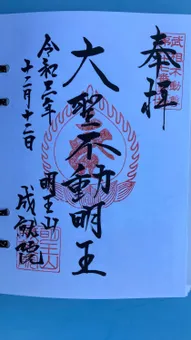 奉拝
大聖不動明王
令和三年
十二月十二日
明王山
成就院